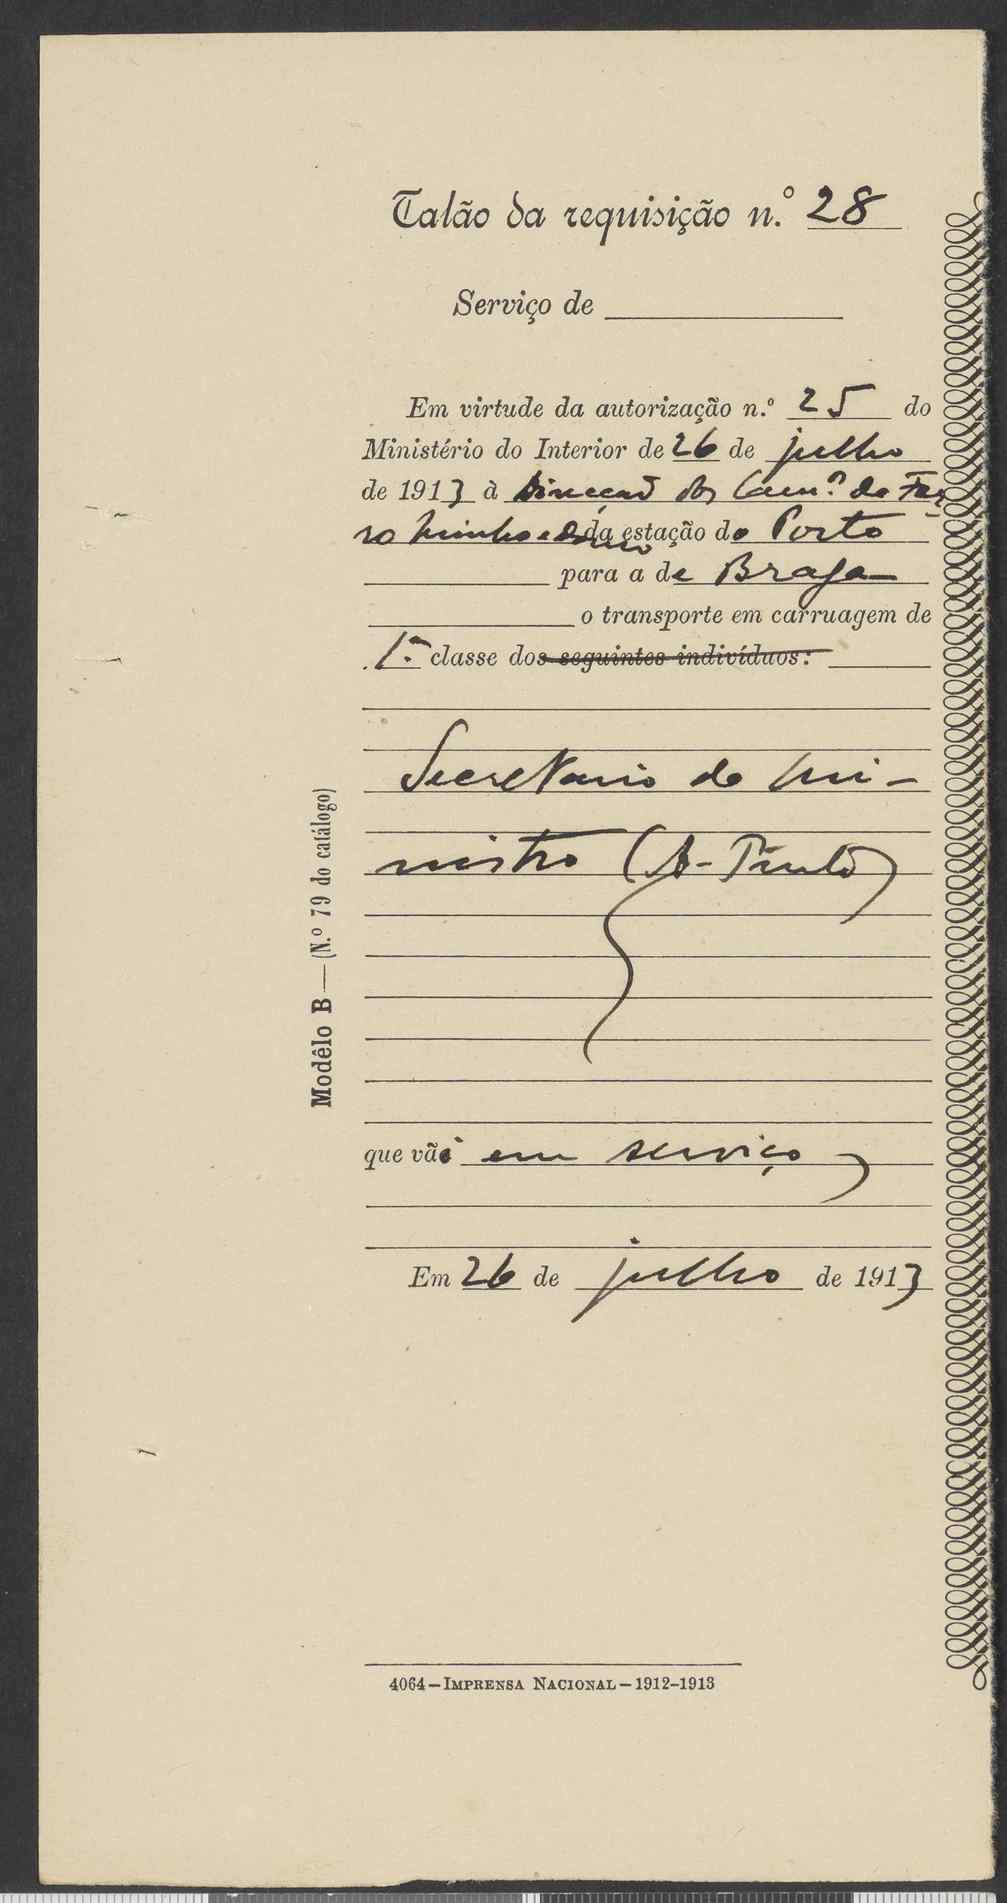 Talão da requisição n.º 28
Serviço de
Em virtude da autorização n.º 25 do
Ministério do Interior de 26 de julho
de 1913 à Direcção dos Cam.os de Fer
ro Minho e Douro da estação do Porto
para a de Braga
o transporte em carruagem de
1.ª classe dos seguintes indivíduos:
Secretario do Mi-
nistro (A. Pinto)
que vai em serviço
Em 26 de julho de 1913
Modêlo B — (N.º 79 do catálogo)
4064 — IMPRENSA NACIONAL — 1912-1913